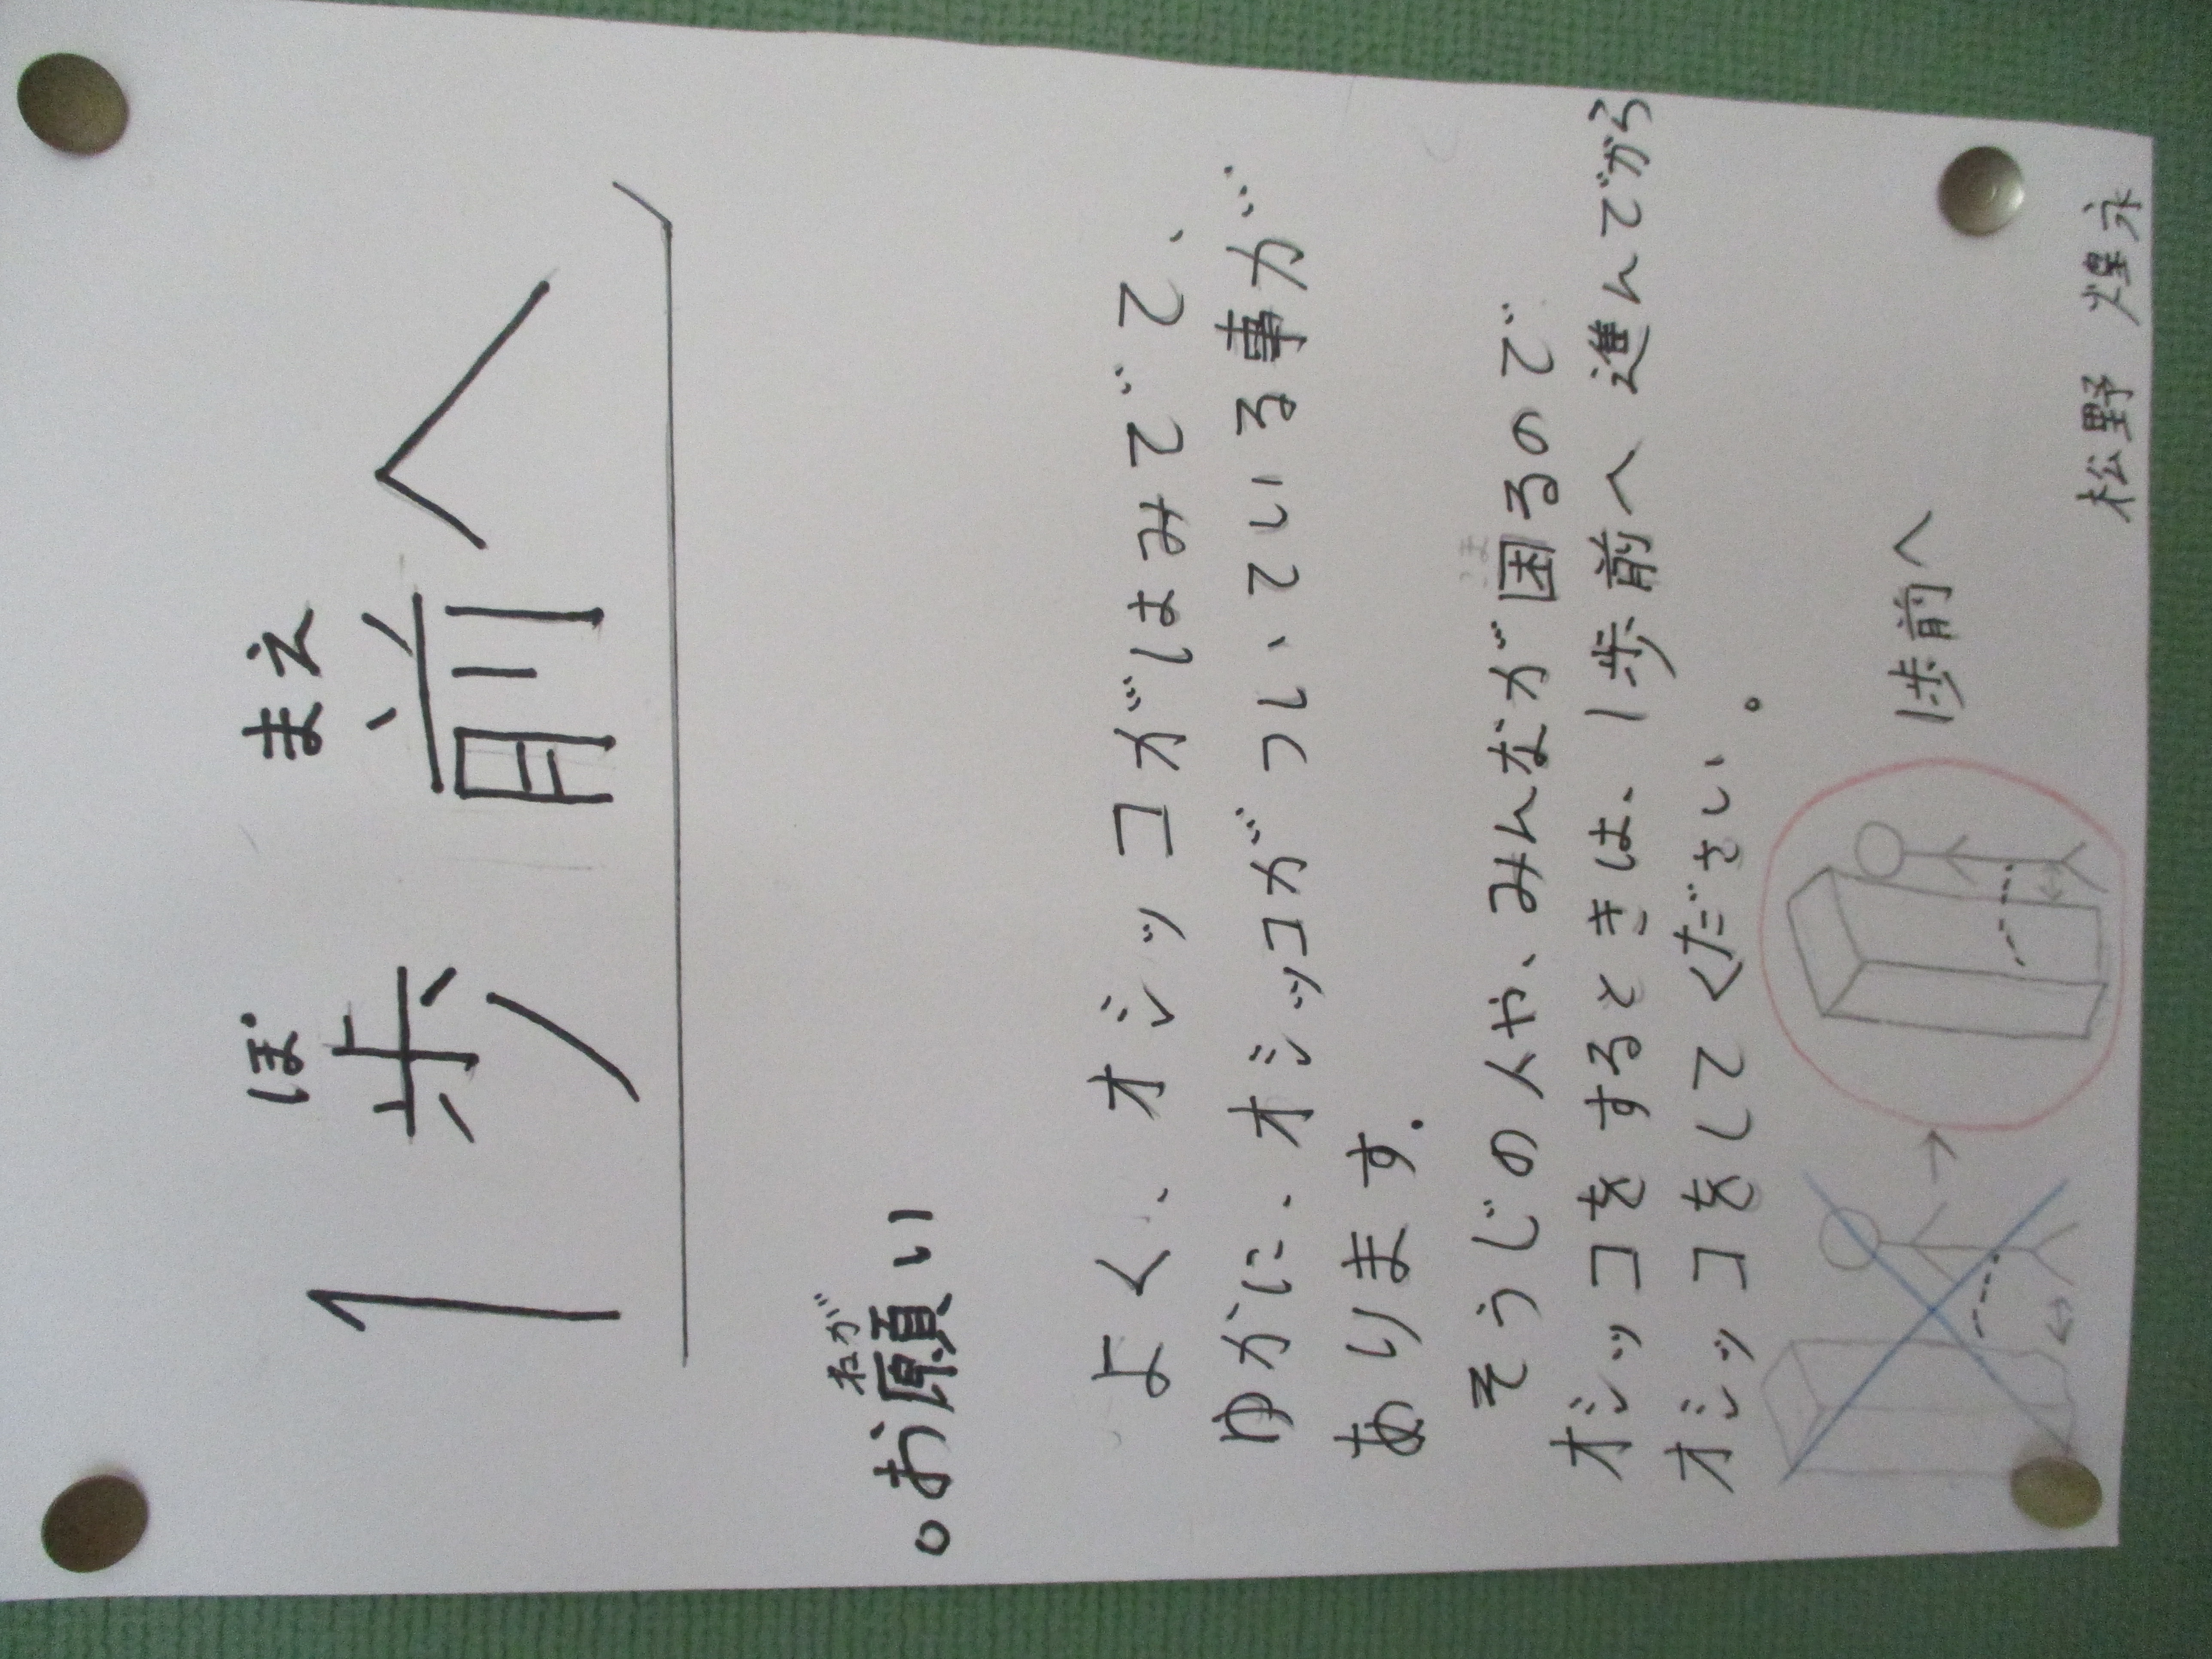 1歩前へ
ぽ まえ
。お願い
ねが
よく、オシッコがはみでて、
ゆかに、オシッコがついている事が
あります.
そうじの人や、みんなが困るので
こま
オシッコをするときは、1歩前へ進んでから
オシッコをしてください。
1歩前へ
松野 煌永